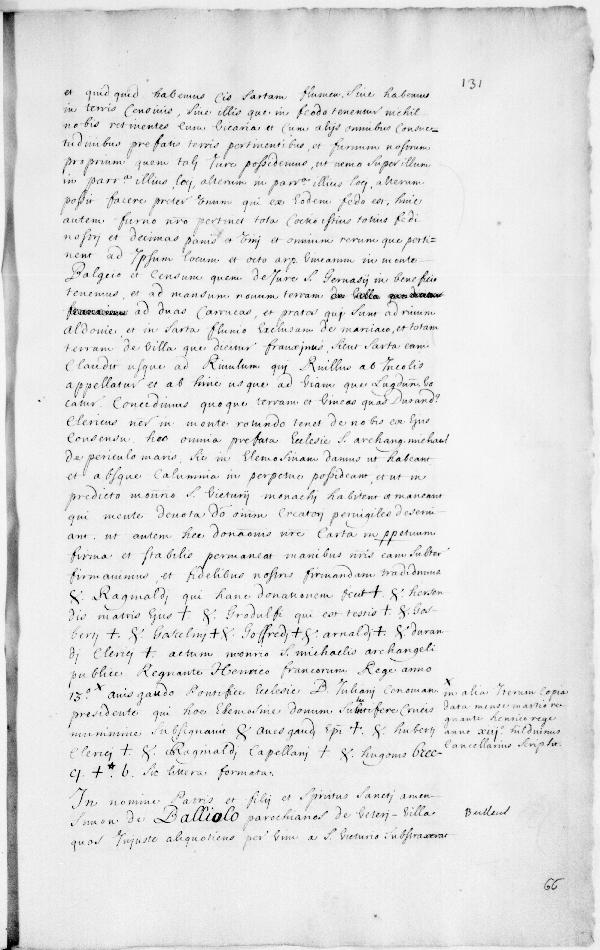 131
et quidquid habemus cis Sartam flumen. Sive habemus
in terris Censivis, Sive illis que in feodo tenentur nichil
nobis retinentes Cum Vicaria et Cum alijs omnibus Consue=
tudinibus prefatis terris pertinentibus, et furnum nostrum
proprium quem tali Jure possidemus, ut nemo Super illum
in parr.ª illius loci, alterum in parr.ª illius loci, alterum
possit facere preter Unum qui ex Eodem fedo est, huic
autem furno nro pertinet tota Coctio istius totius fedi
nostri et decimas panis et Vini et omnium rerum que perti-
nent ad Ipsum locum et octo arp. Vinearum in monte-
Balgeio et Censum quem de Jure S. Gervasij in beneficio
tenemus, et ad mansum novum terram
ad duas Carrucas, et pratos qui Sunt ad rivum
Aldonie, et in Sarta fluvio Exclusam de maniaco, et totam
terram de Villa que dicitur francinus, Sicut Sarta eam
Claudit usque ad Rivulum qui Rivillus ab Incolis
appellatur et ab hinc usque ad Viam que Lugdun. Vo
catur. Concedimus quoque terram et Vineas quas Durand.s
Clericus ner in monte rotundo tenet de nobis ex Ejus
Consensu. hec omnia prefata Ecclesie S. archang. michaelis
de periculo maris, Sic in Elemosinam damus ut habeant
et absque Calumnia in perpetuo possideant, et ut in
predicto monrio S. Victurij monachi habitent et maneant
qui mente devota Do omnium Creatori pervigiles deservi-
ant. ut autem hec donaonis nre Carta in pperpetuum
firma et stabilis permaneat manibus nris eam Subter
firmavimus, et fidelibus nostris firmandam tradidimus
&. Raginaldi qui hanc donationem fecit ✝. &. hersen
dis matris Ejus ✝ &. Grodulfi qui est testis ✝ &. Gos-
berti ✝. &. Gaselini ✝ &. Goffredi ✝ &. arnaldi ✝. &. duran
di Clerici ✝. actum monrio S. michaelis archangeli
publice Regnante Henrico francorum Rege anno
13.º X avisgaudo Pontifice Ecclesie D. Juliani Cenomani
presidente qui hoc Elemosine donum Salutifere Crucis
munimine Subsignavit &. avesgaudi Epi ✝. &. huberti
Clerici ✝. &. Raginaldi Capellani ✝ &. hugonis brec-
ci ✝* b. Sic littera formata.
X in alia Iterum Copia
Data mense martio re
gnante henrico rege
anno xiij. hilduinus
Cancellarius Scripsit.
In nomine Patris et filij et Spiritus Sancti amen
Simon de Balliolo parochianos de Veteri-Villa
quos Injuste aliquotiens per Vim a S. Victurio Substraxerat
Bulleul
66